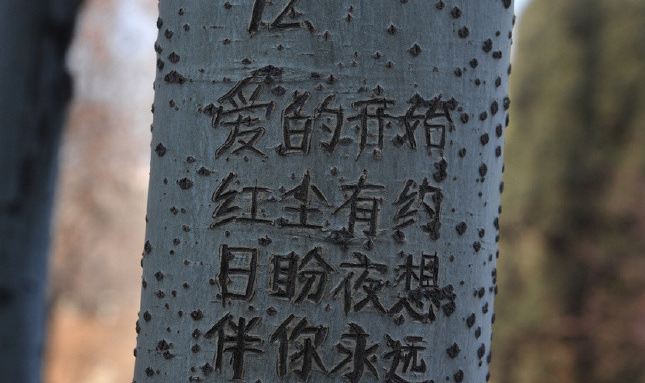 爱的开始
红尘有约
日盼夜想
伴你永远